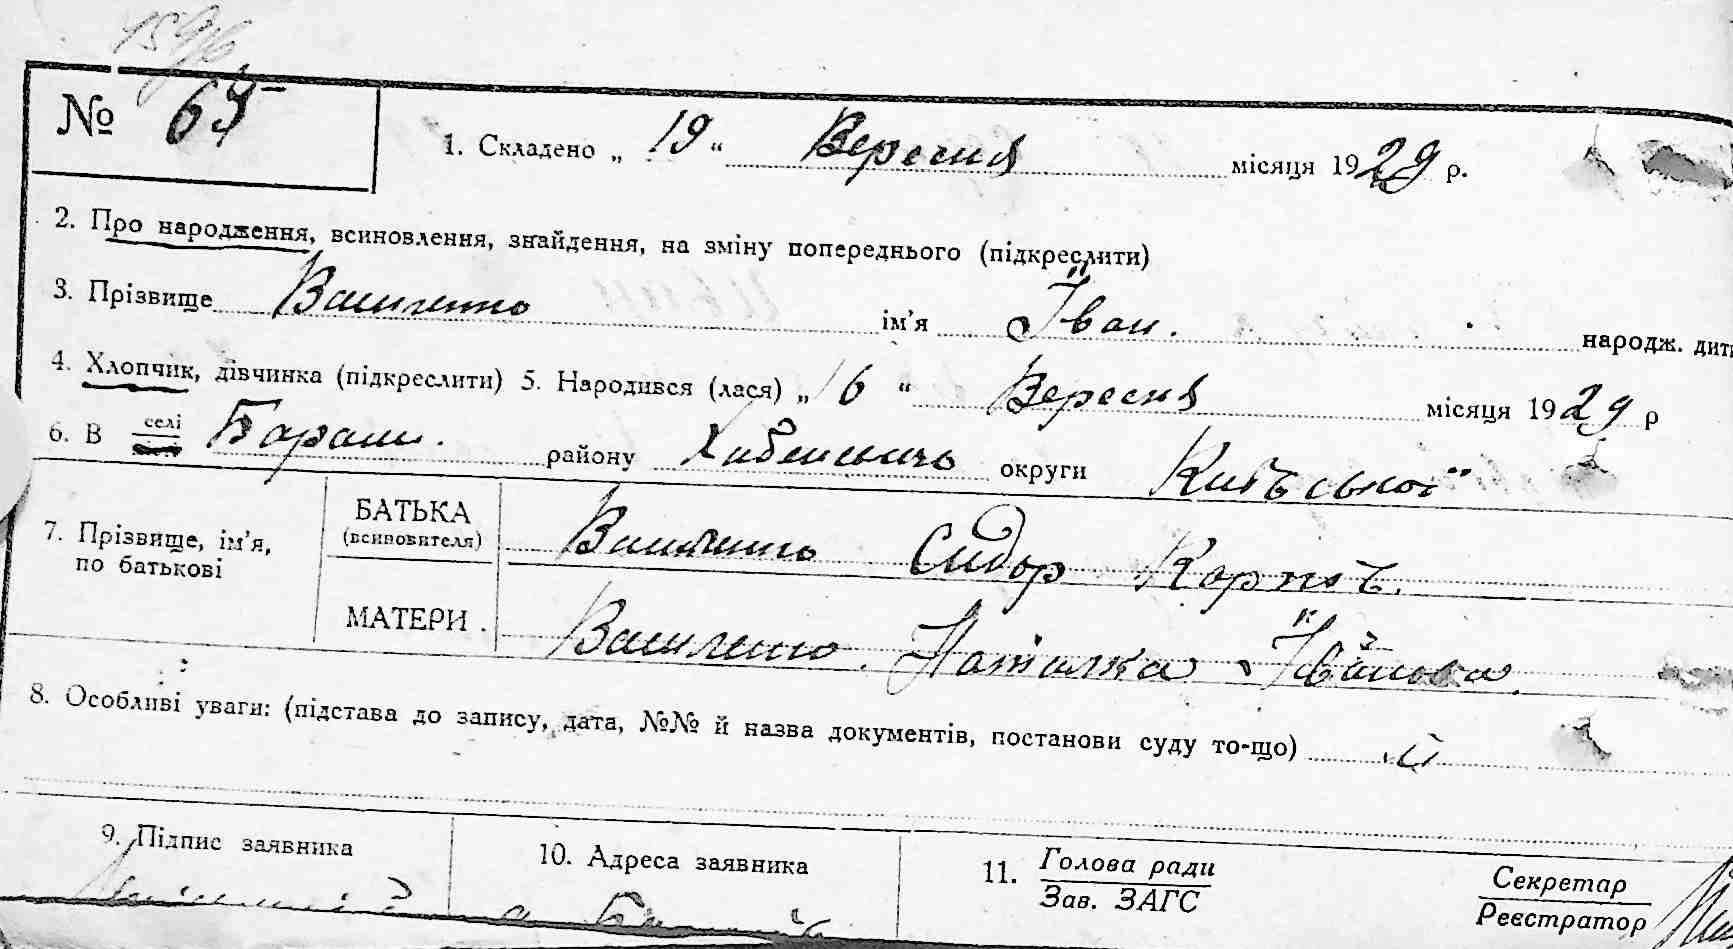 № 65
1. Складено „ 19 “ Вересня місяця 1929 р.
2. Про народження, всиновлення, знайдення, на зміну попереднього (підкреслити)
3. Прізвище Василенко ім’я Іван. народж. дит
4. Хлопчик, дівчинка (підкреслити) 5. Народився (лася) „ 16 “ Вересня місяця 1929 р
6. В селі району округи
7. Прізвище, ім’я, по батькові
БАТЬКА (всиновителя) Василенко Сидор
МАТЕРИ. Василенко. Наталка Іванова.
8. Особливі уваги: (підстава до запису, дата, №№ й назва документів, постанови суду то-що)
9. Підпис заявника
10. Адреса заявника
11. Голова ради
Зав. ЗАГС
Секретар
Реєстратор